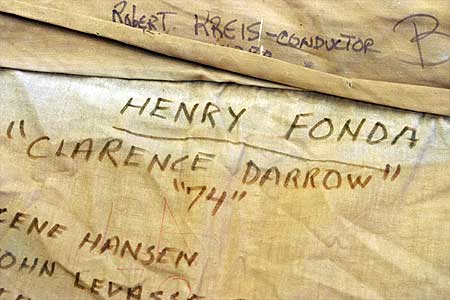 ROBERT KREIS-CONDUCTOR
B
HENRY FONDA
"CLARENCE DARROW"
"74"
ENE HANSEN
OHN LEVASSE